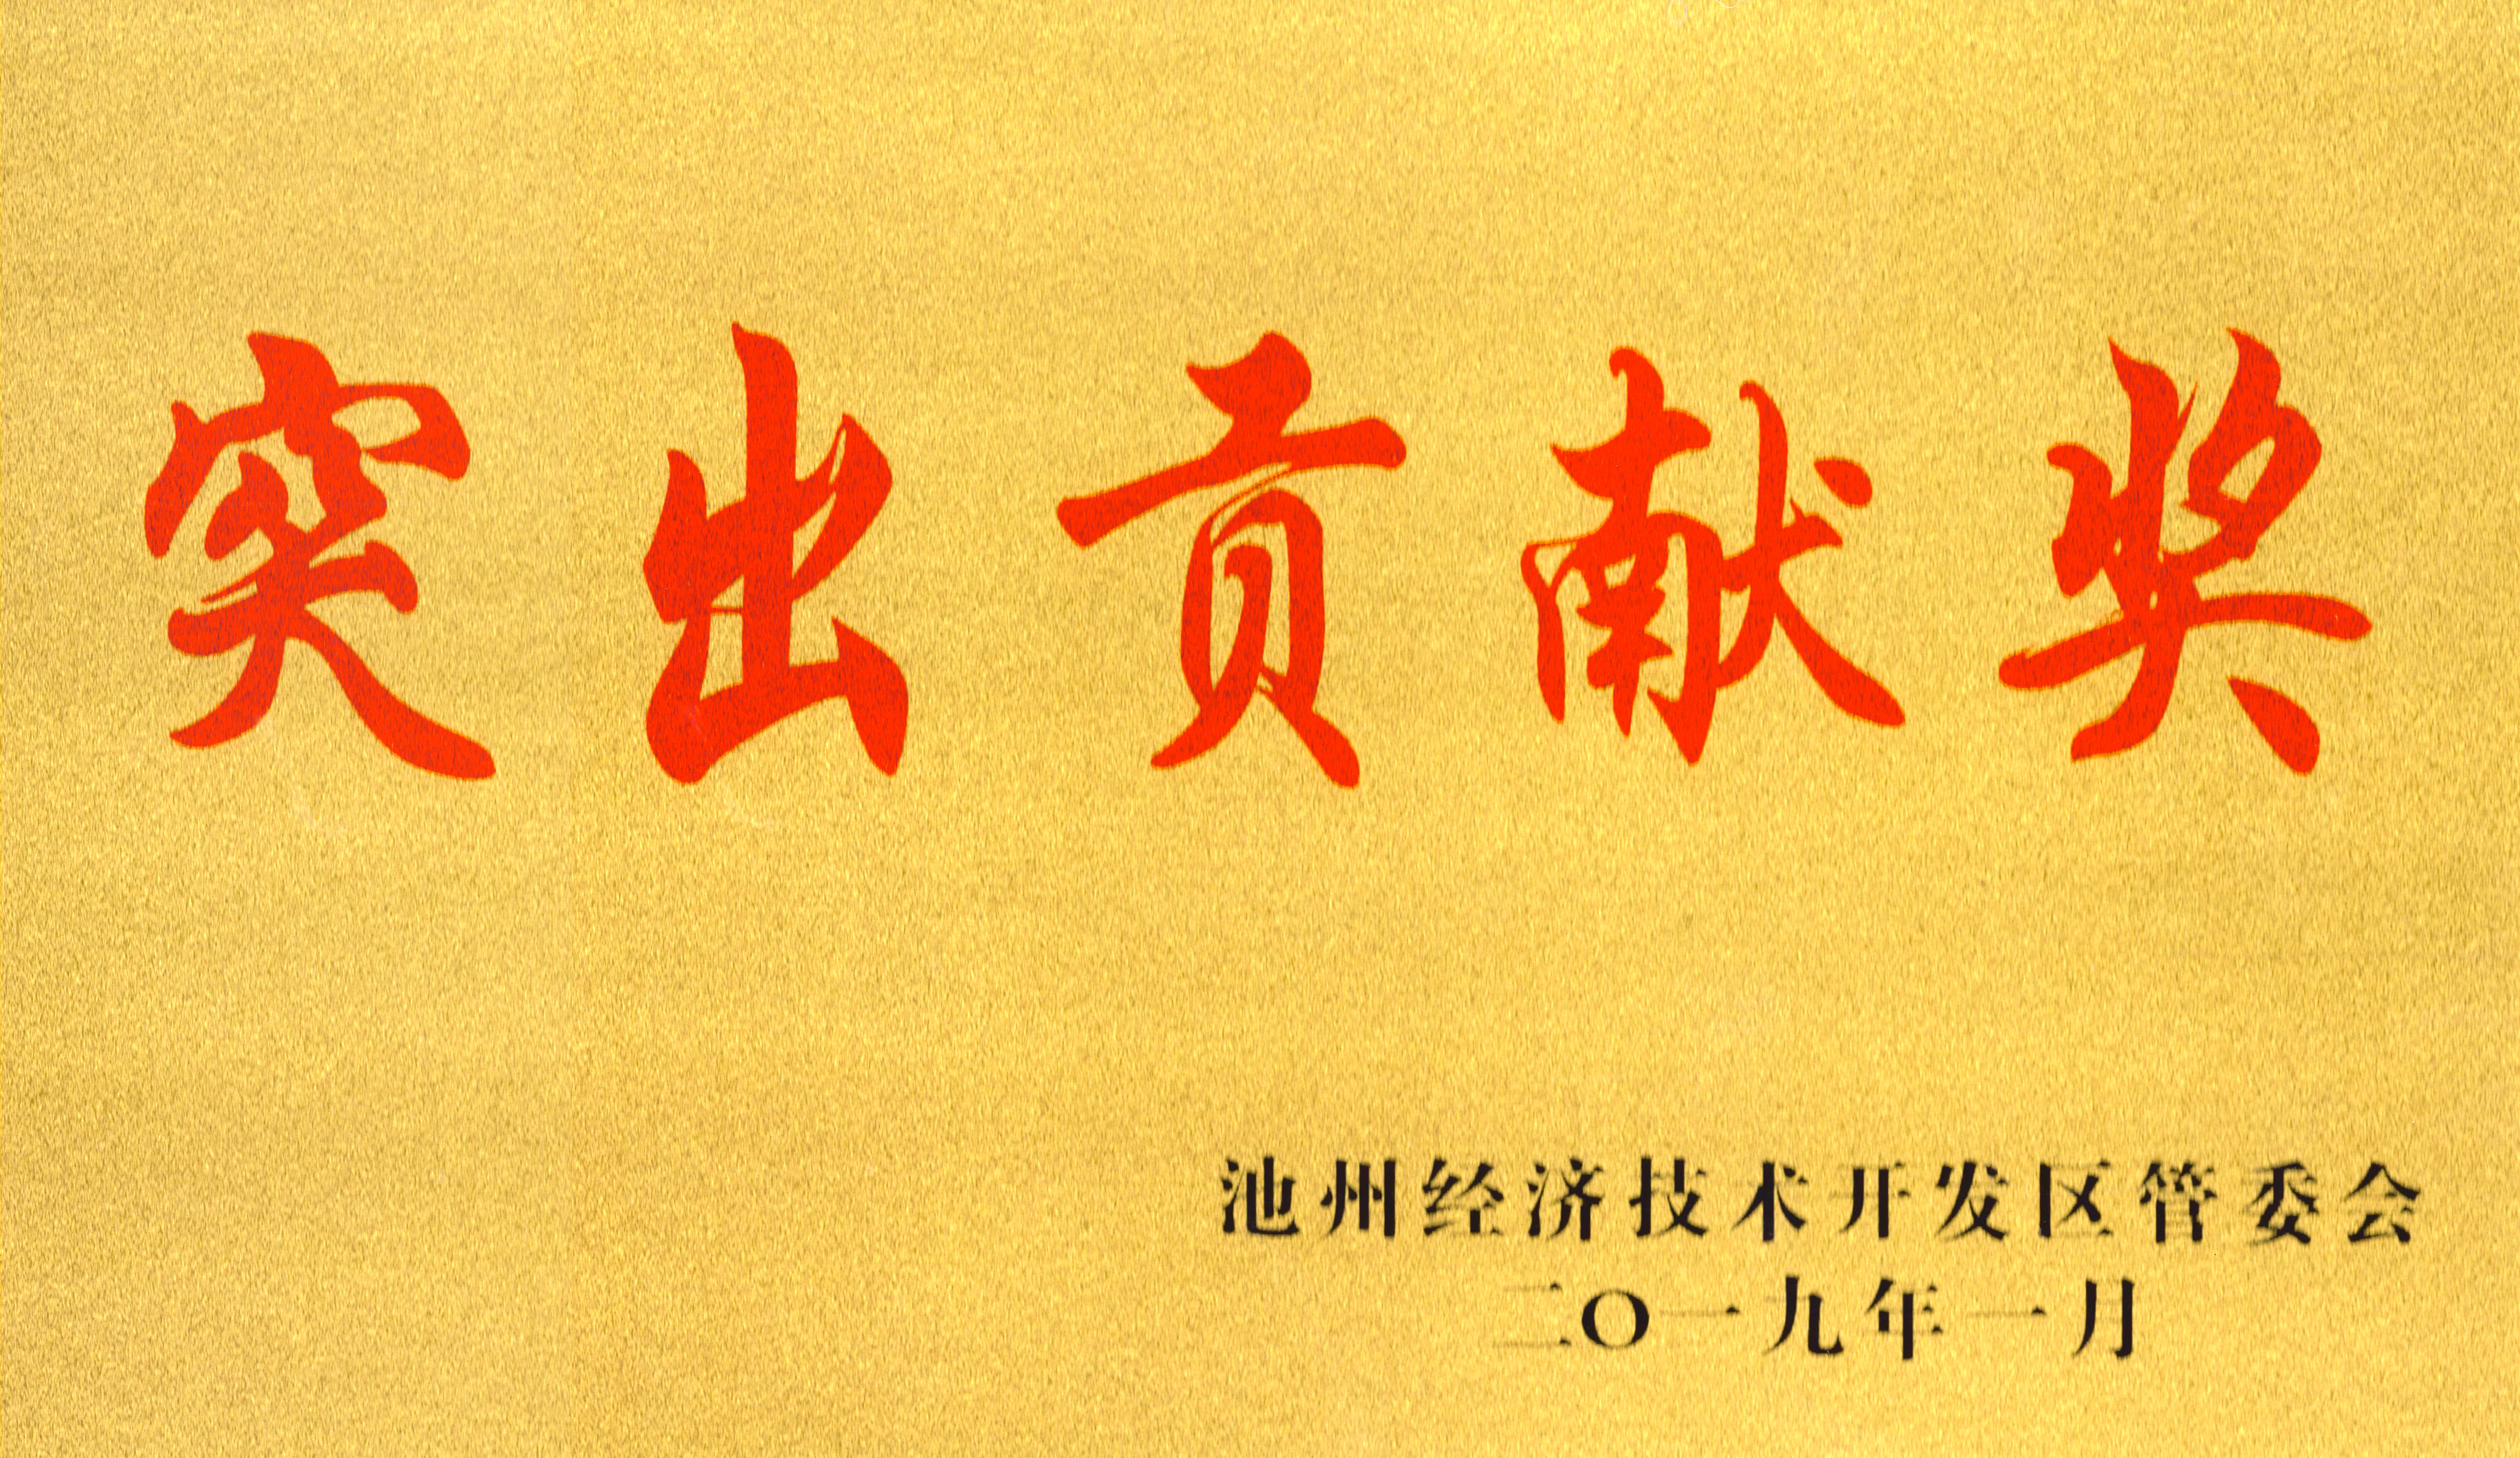 突出贡献奖
池州经济技术开发区管委会
二〇一九年一月